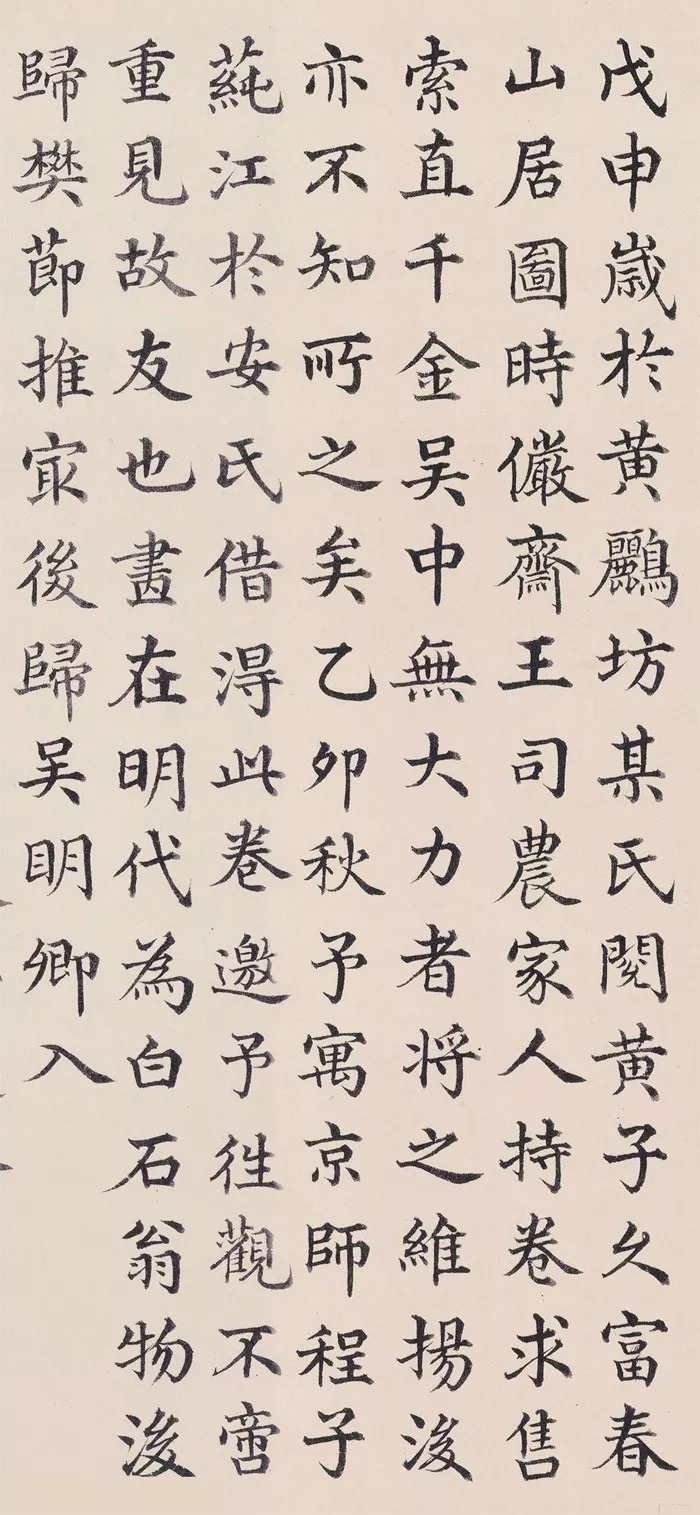 戊申嵗於黄鸝坊某氏閱黄子久富春
山居圖時儼齋王司農家人持卷求售
索直千金吴中無大力者将之維揚後
亦不知所之矣乙卯秋予寓京師程子
蒓江於安氏借得此卷邀予徃觀不啻
重見故友也畫在明代為白石翁物後
歸樊莭推㝡後歸吴明卿入